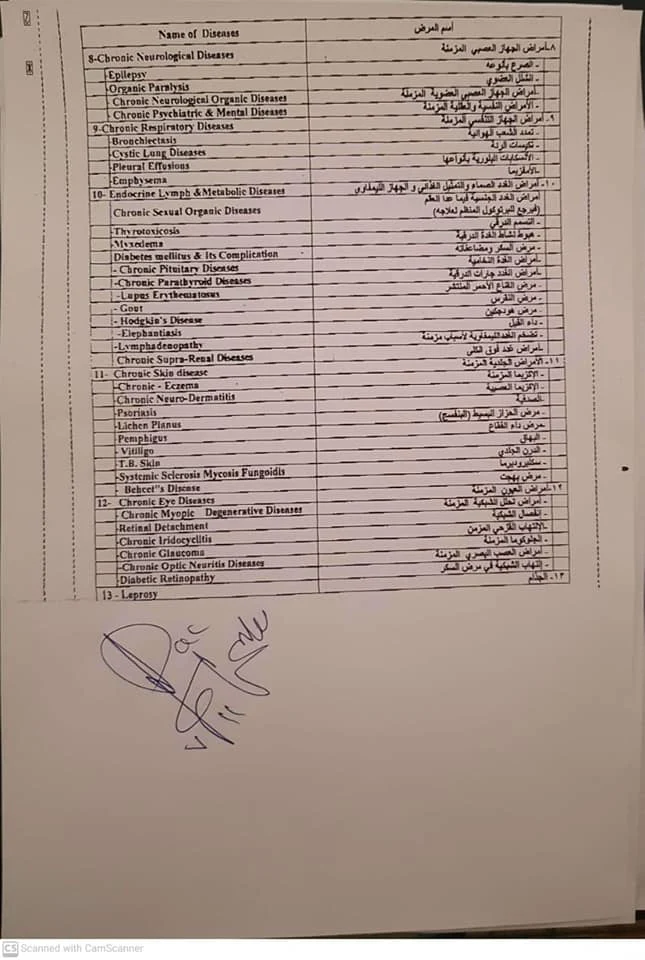 Name of Diseases
أسم المرض
8-Chronic Neurological Diseases
٨ـأمراض الجهاز العصبي المزمنة
-Epilepsy
- الصرع بأنواعه
-Organic Paralysis
- الشلل العضوي
- Chronic Neurological Organic Diseases
-أمراض الجهاز العصبي العضوية المزمنة
- Chronic Psychiatric & Mental Diseases
- الأمراض النفسية والعقلية المزمنة
9-Chronic Respiratory Diseases
٩- أمراض الجهاز التنفسي المزمنة
-Bronchiectasis
- تمدد الشعب الهوائية
-Cystic Lung Diseases
- تكيسات الرئة
-Pleural Effusions
- الأنسكابات البلورية بأنواعها
-Emphysema
-الأمفزيما
10- Endocrine Lymph &Metabolic Diseases
١٠- أمراض الغدد الصماء والتمثيل الغذائي و الجهاز الليمفاوي
Chronic Sexual Organic Diseases
أمراض الغدد الجنسية فيما عدا العقم
(فيرجع للبرتوكول المنظم لعلاجه)
-Thyrotoxicosis
- التسمم الدرقي
-Myxedema
- هبوط نشاط الغدة الدرقية
Diabetes mellitus & Its Complication
- مرض السكر ومضاعفاته
- Chronic Pituitary Diseases
-أمراض الغدة النخامية
-Chronic Parathyroid Diseases
-أمراض الغدد جارات الدرقية
-Lupus Erythematosus
- مرض القناع الأحمر المنتشر
- Gout
- مرض النقرس
- Hodgkin's Disease
- مرض هودجكين
-Elephantiasis
- داء الفيل
-Lymphadenopathy
- تضخم الغدد الليمفاوية لأسباب مزمنة
Chronic Supra-Renal Diseases
-أمراض غدد فوق الكلى
11- Chronic Skin disease
١١- الأمراض الجلدية المزمنة
-Chronic - Eczema
- الإكزيما المزمنة
-Chronic Neuro-Dermatitis
- الإكزيما العصبية
-Psoriasis
-الصدفية
-Lichen Planus
- مرض الحزاز البسيط (البنفسج)
Pemphigus
-مرض داء الفقاع
- Vitiligo
- البهاق
-T.B. Skin
- الدرن الجلدي
-Systemic Sclerosis Mycosis Fungoidis
- سكليروديرما
- Behcet"s Disease
- مرض بهجت
12- Chronic Eye Diseases
١٢-أمراض العيون المزمنة
- Chronic Myopic Degenerative Diseases
- أمراض تحلل الشبكية المزمنة
-Retinal Detachment
- إنفصال الشبكية
-Chronic Iridocyclitis
-الإلتهاب القزحي المزمن
-Chronic Glaucoma
- الجلوكوما المزمنة
-Chronic Optic Neuritis Diseases
- أمراض العصب البصري المزمنة
-Diabetic Retinopathy
- إلتهاب الشبكية في مرض السكر
13 - Leprosy
١٣- الجذام
CS Scanned with CamScanner